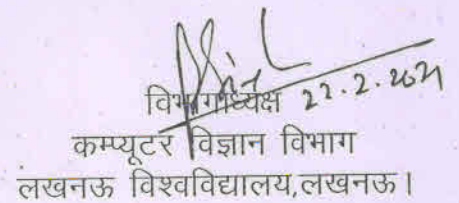 विभागाध्यक्ष 22.2.2021
कम्प्यूटर विज्ञान विभाग
लखनऊ विश्वविद्यालय,लखनऊ।